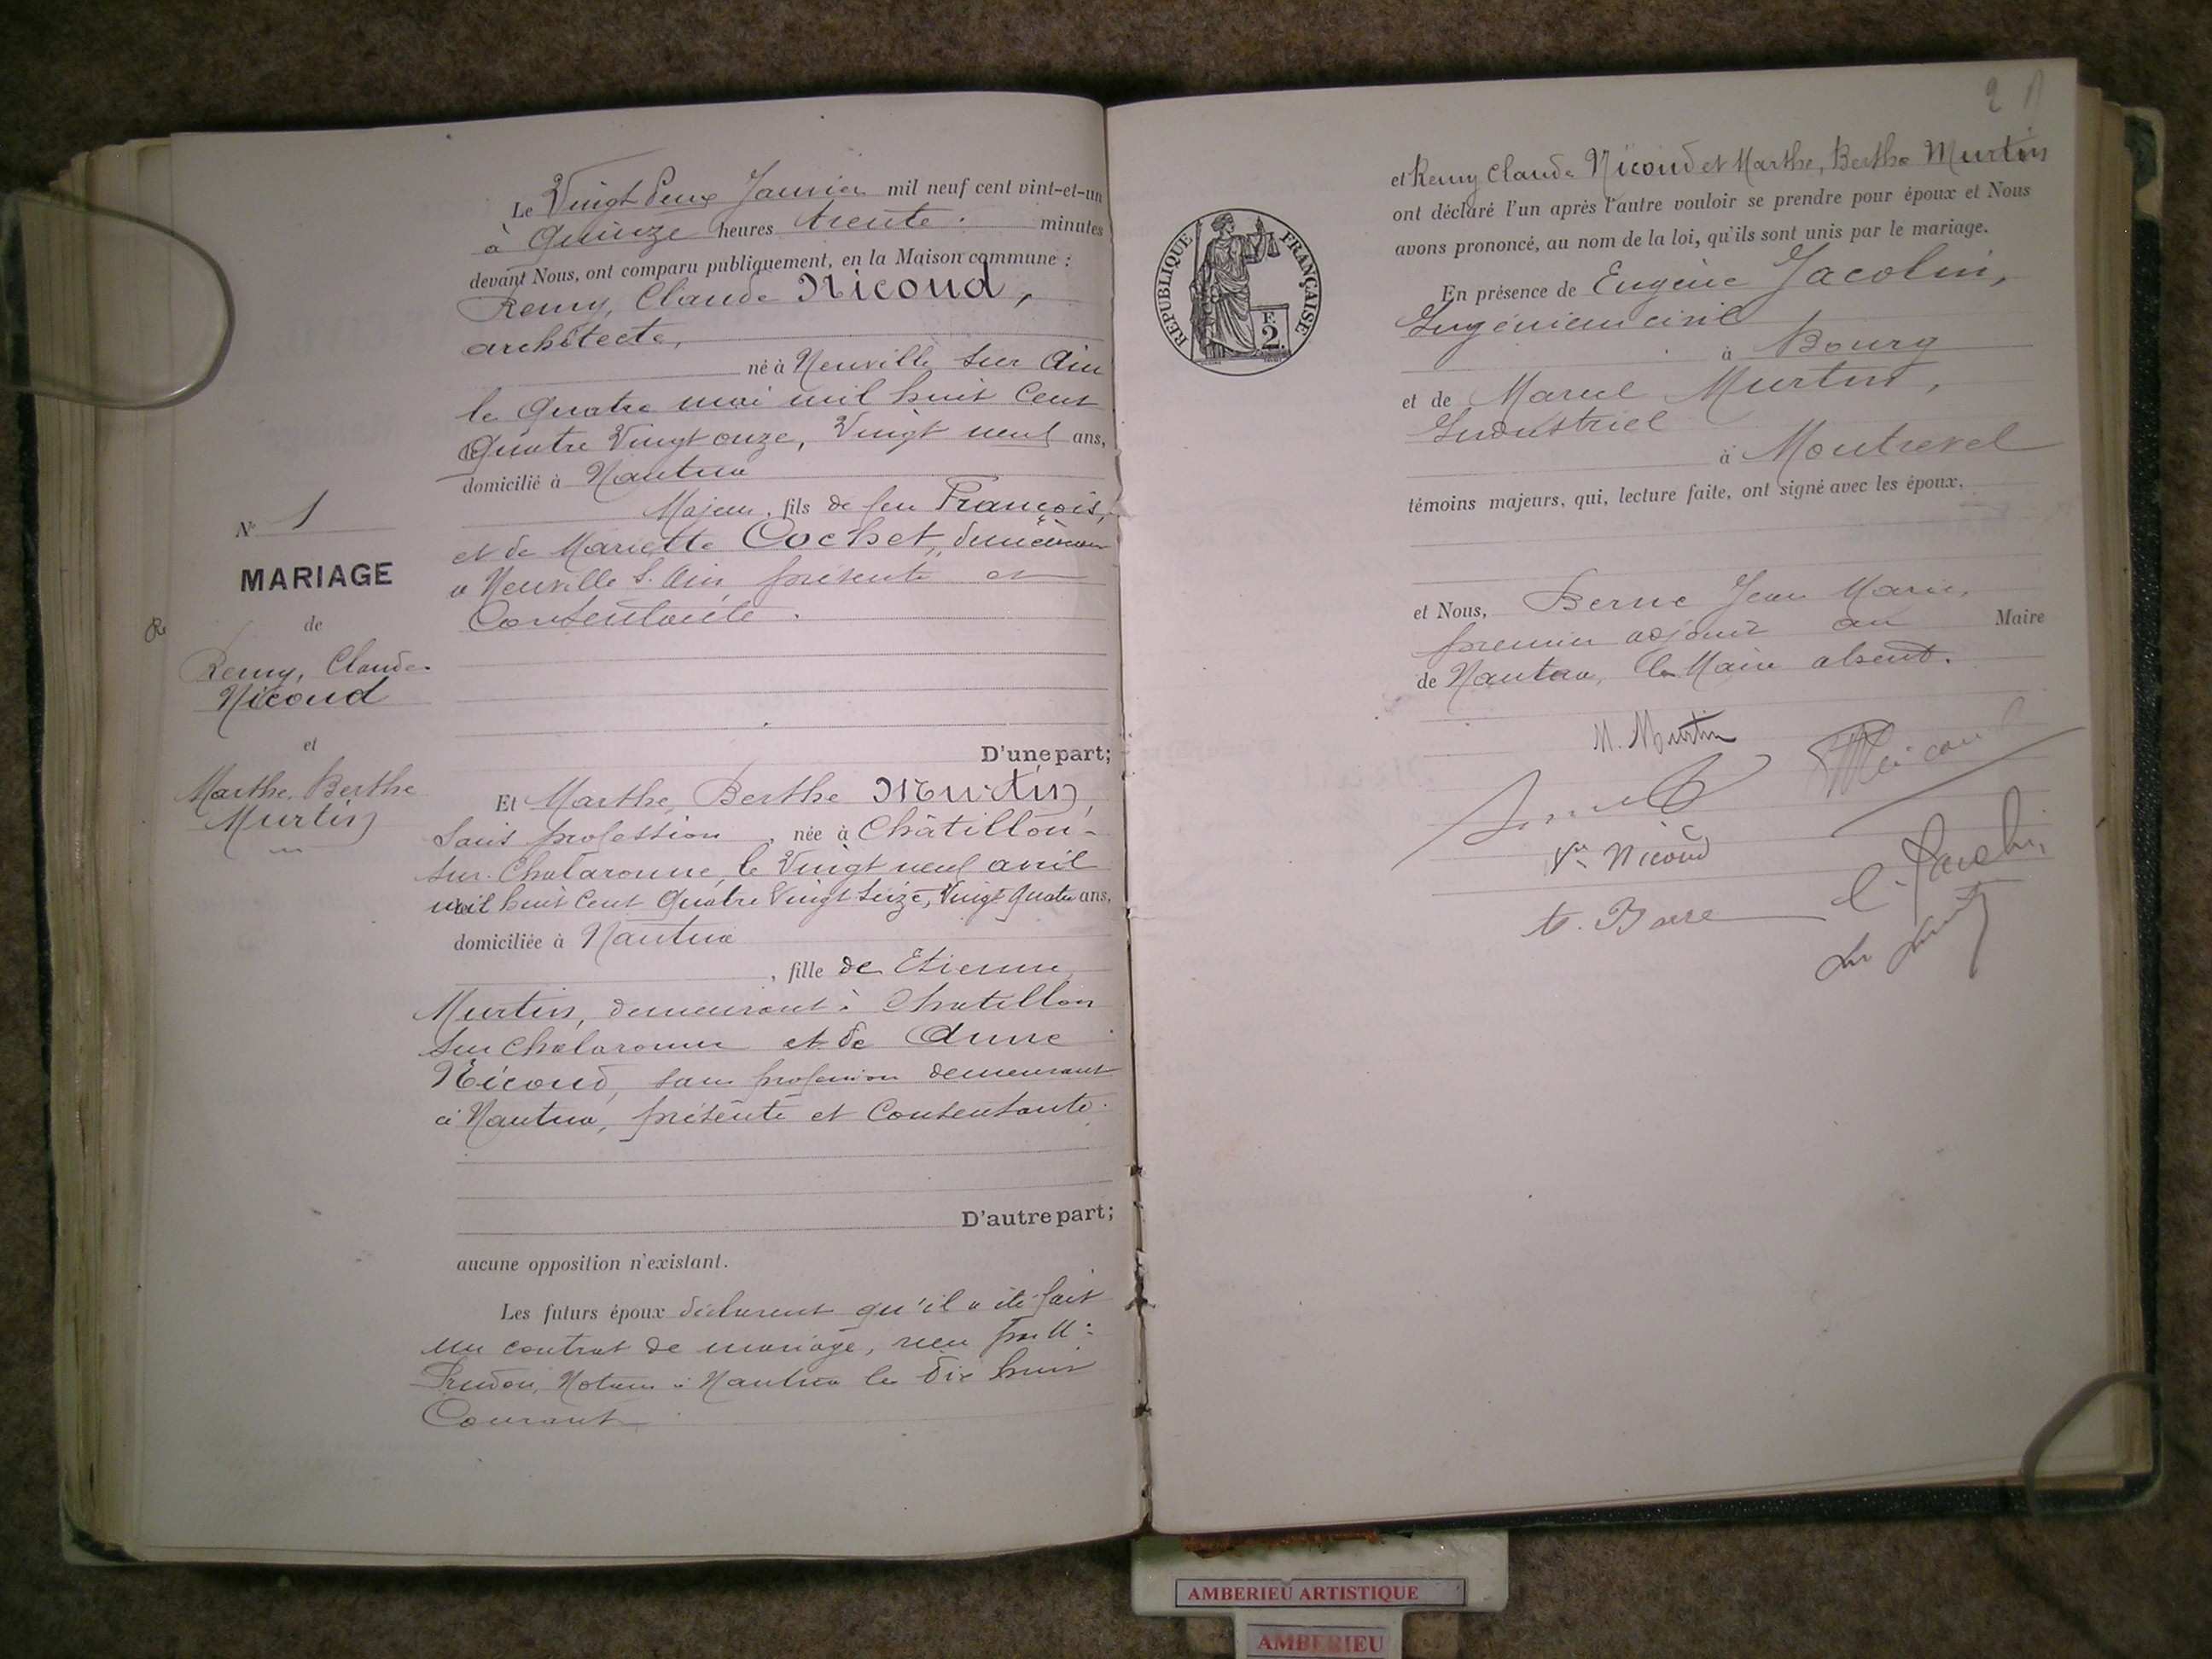 Le Vingt deux Janvier mil neuf cent vint-et-un
à Quinze heures trente minutes
devant Nous, ont comparu publiquement, en la Maison commune :
Remy, Claude Nicoud,
architecte,
né à Neuville sur Ain
le Quatre mai mil huit Cent
Quatre Vingt onze, Vingt neuf ans,
domicilié à Nantua
Majeur, fils de feu François,
et de Mariette Cochet, demeurant
à Neuville s. Ain, présente et
Consentante.
N° 1
MARIAGE
de
Remy, Claude
Nicoud
et
Marthe, Berthe
Murtin
D'une part;
Et Marthe, Berthe Murtin,
Sans profession, née à Châtillon-
sur-Chalaronne, le Vingt neuf avril
mil huit Cent Quatre Vingt Seize, Vingt quatre ans,
domiciliée à Nantua
, fille de Etienne
Murtin, demeurant à Chatillon
sur Chalaronne et de Anne
Nicoud, sans profession demeurant
à Nantua, présente et Consentante.
D'autre part;
aucune opposition n'existant.
Les futurs époux déclarent qu'il a été fait
un contrat de mariage, recu par M:
Prudon, Notaire à Nantua le dix huit
Courant
2
et Remy Claude Nicoud et Marthe, Berthe Murtin
ont déclaré l'un après l'autre vouloir se prendre pour époux et Nous
avons prononcé, au nom de la loi, qu'ils sont unis par le mariage.
REPUBLIQUE FRANÇAISE
F. 2.
En présence de Eugène Jacolin,
Ingénieur civil
à Bourg
et de Marcel Murtin,
Industriel
à Montrevel
témoins majeurs, qui, lecture faite, ont signé avec les époux.
et Nous, Berne Jean Marie,
premier adjoint au Maire
de Nantua, le Maire absent.
M. Murtin
Nicoud
Vve Nicoud
E. Jacolin
AMBERIEU ARTISTIQUE
AMBERIEU